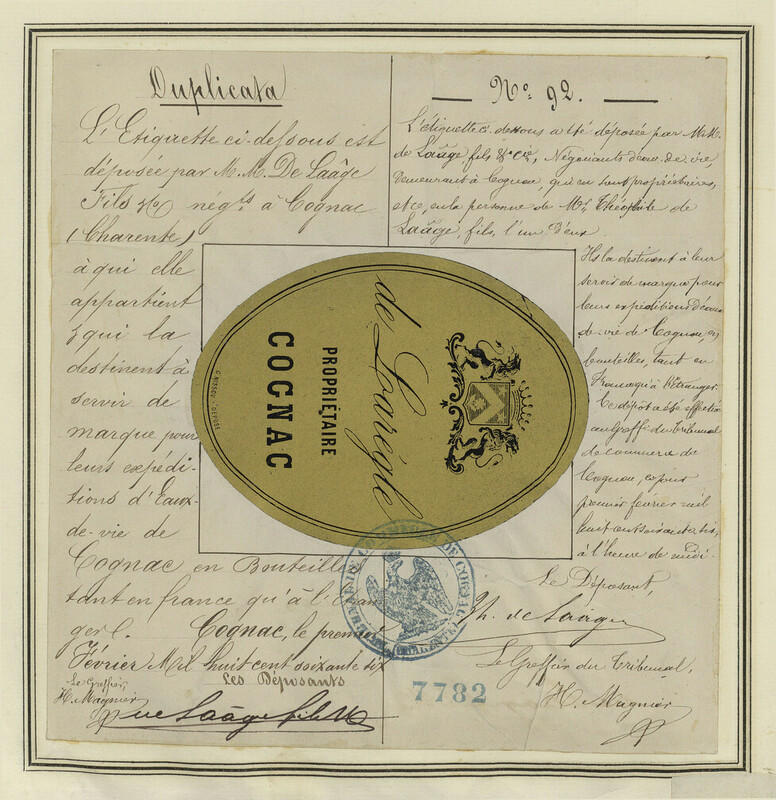 Duplicata
L'Etiquette ci-dessous est
déposée par M.M. De Laâge
Fils & Co négts à Cognac
(Charente)
à qui elle
appartient
& qui la
destinent à
servir de
marque pour
leurs expédi-
tions d'Eaux-
de-vie de
Cognac en Bouteilles
tant en france qu'à l'étran
ger.
Cognac, le premier
Février Mil huit cent soixante dix
Les Déposants
Le Greffier,
H. Magnier
de Laâge fils & Co
No. 92.
L'étiquette ci dessous a été déposée par M.M.
de Laâge fils & Cie, Négociants d'eau-de-vie,
demeurant à Cognac, qui en sont propriétaires,
et ce, en la personne de Mr. Théophile de
Laâge, fils, l'un d'eux
Ils la destinent à leur
servir de marque pour
leurs expéditions d'eaux
de-vie de Cognac, en
bouteilles, tant en
France qu'à l'étranger.
Ce dépôt a été effectué
au Greffe du Tribunal
de commerce de
Cognac, ce jour
premier février mil
huit cent soixante dix,
à l'heure de midi.
Le Déposant,
Th. de Laâge
Le Greffier du Tribunal,
H. Magnier
de Lorègle
PROPRIÉTAIRE
COGNAC
DE COGNAC
7782